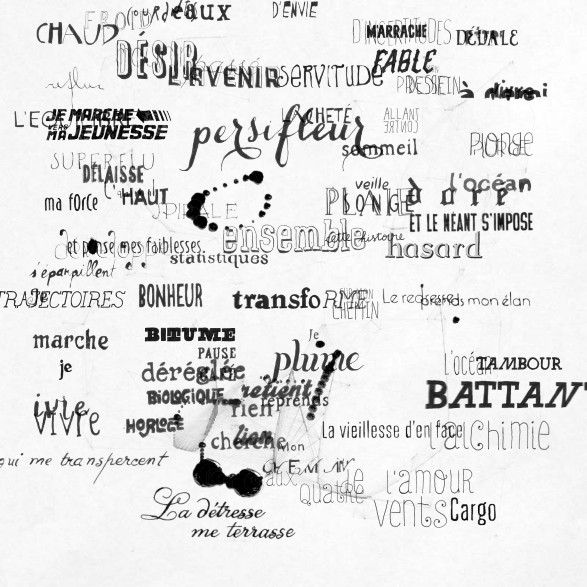 FROID
CHAUD
D'ENVIE
D'INCERTITUDES
MARRACHE
DÉDALE
DÉSIR
FABLE
PARVENIR
SERVITUDE
reflux
DESSEIN
JE MARCHE
VERS
MA JEUNESSE
persifleur
ALLANT
CONTRE
sommeil
SUPERFLU
DÉLAISSE
veille
l'océan
HAUT
ma force
SPIRALE
PLONGE
ET LE NÉANT S'IMPOSE
ensemble
cette histoire
et pense mes faiblesses.
hasard
statistiques
s'éparpillent
TRAJECTOIRES
BONHEUR
transforme
CHEMIN
Le regresse
prends mon élan
marche
BITUME
Je
PAUSE
plume
je
déréglée
l'océan
TAMBOUR
BIOLOGIQUE
retient
rien
reprends
BATTANT
ivre
vivre
HORLOGE
La vieillesse d'en face
l'alchimie
cherche
lien
Mon
qui me transpercent
CHEMIN
aux
quatre
l'amour
vents
Cargo
La détresse
me terrasse